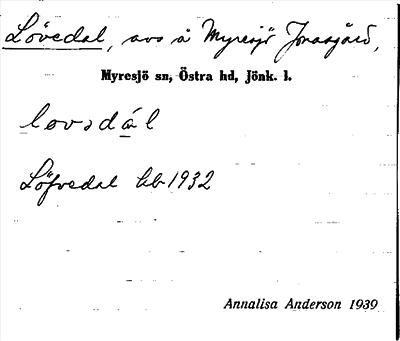 Lövedal, avs å Myresjö Jonasgård,
Myresjö sn, Östra hd, Jönk. l.
lovsdál
Löfvedal kb 1932
Annalisa Anderson 1939